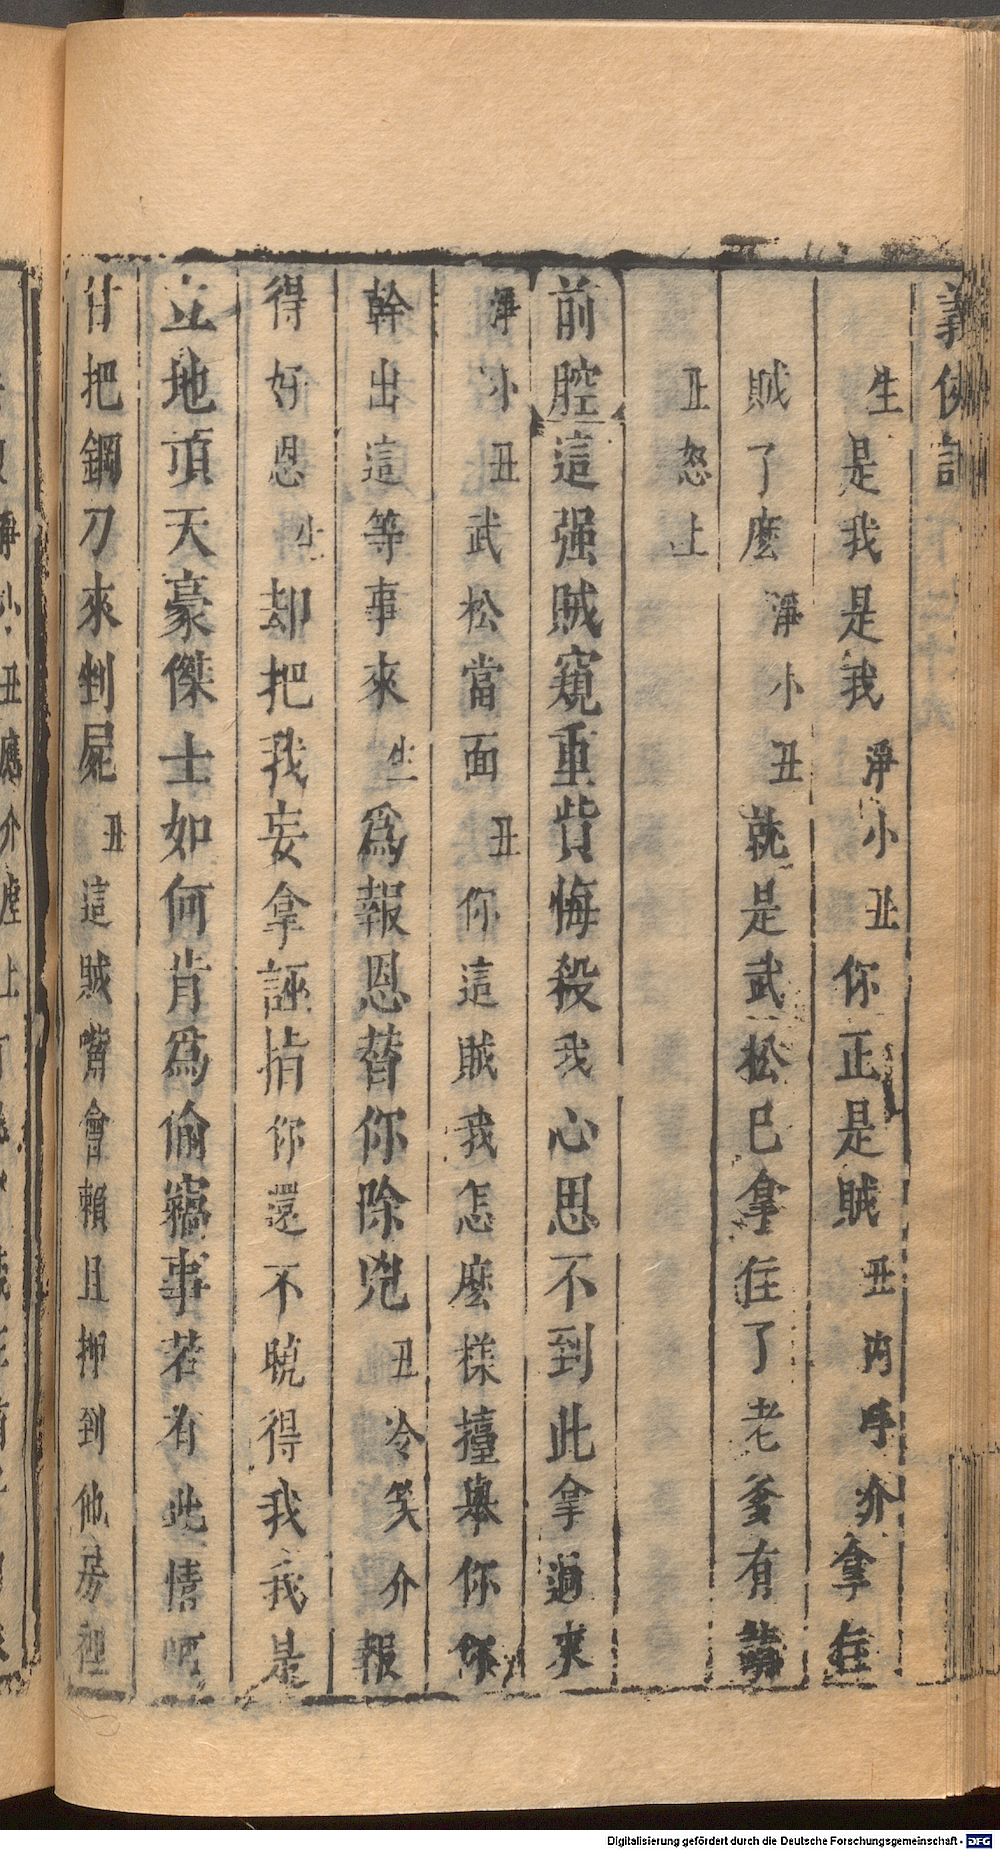 義俠記
下 二十九
生 是我是我 淨小丑 你正是賊 丑內呼介 拿住
賊了麼 淨小丑 就是武松已拿住了老爹有請
丑怒上
前腔 這强賊窺重貲悔殺我心思不到此拿過來
淨小丑 武松當面 丑 你這賊我怎麼樣擡舉你你
幹出這等事來 生 爲報恩替你除兇 丑冷笑介 報
得好恩 生 却把我妄拿誣指你還不曉得我我是
立地頂天豪傑士如何肯爲偷竊事若有此情呵
甘把鋼刀來剉屍 丑 這賊嘴會賴且押到他房裡
Digitalisierung gefördert durch die Deutsche Forschungsgemeinschaft - DFG